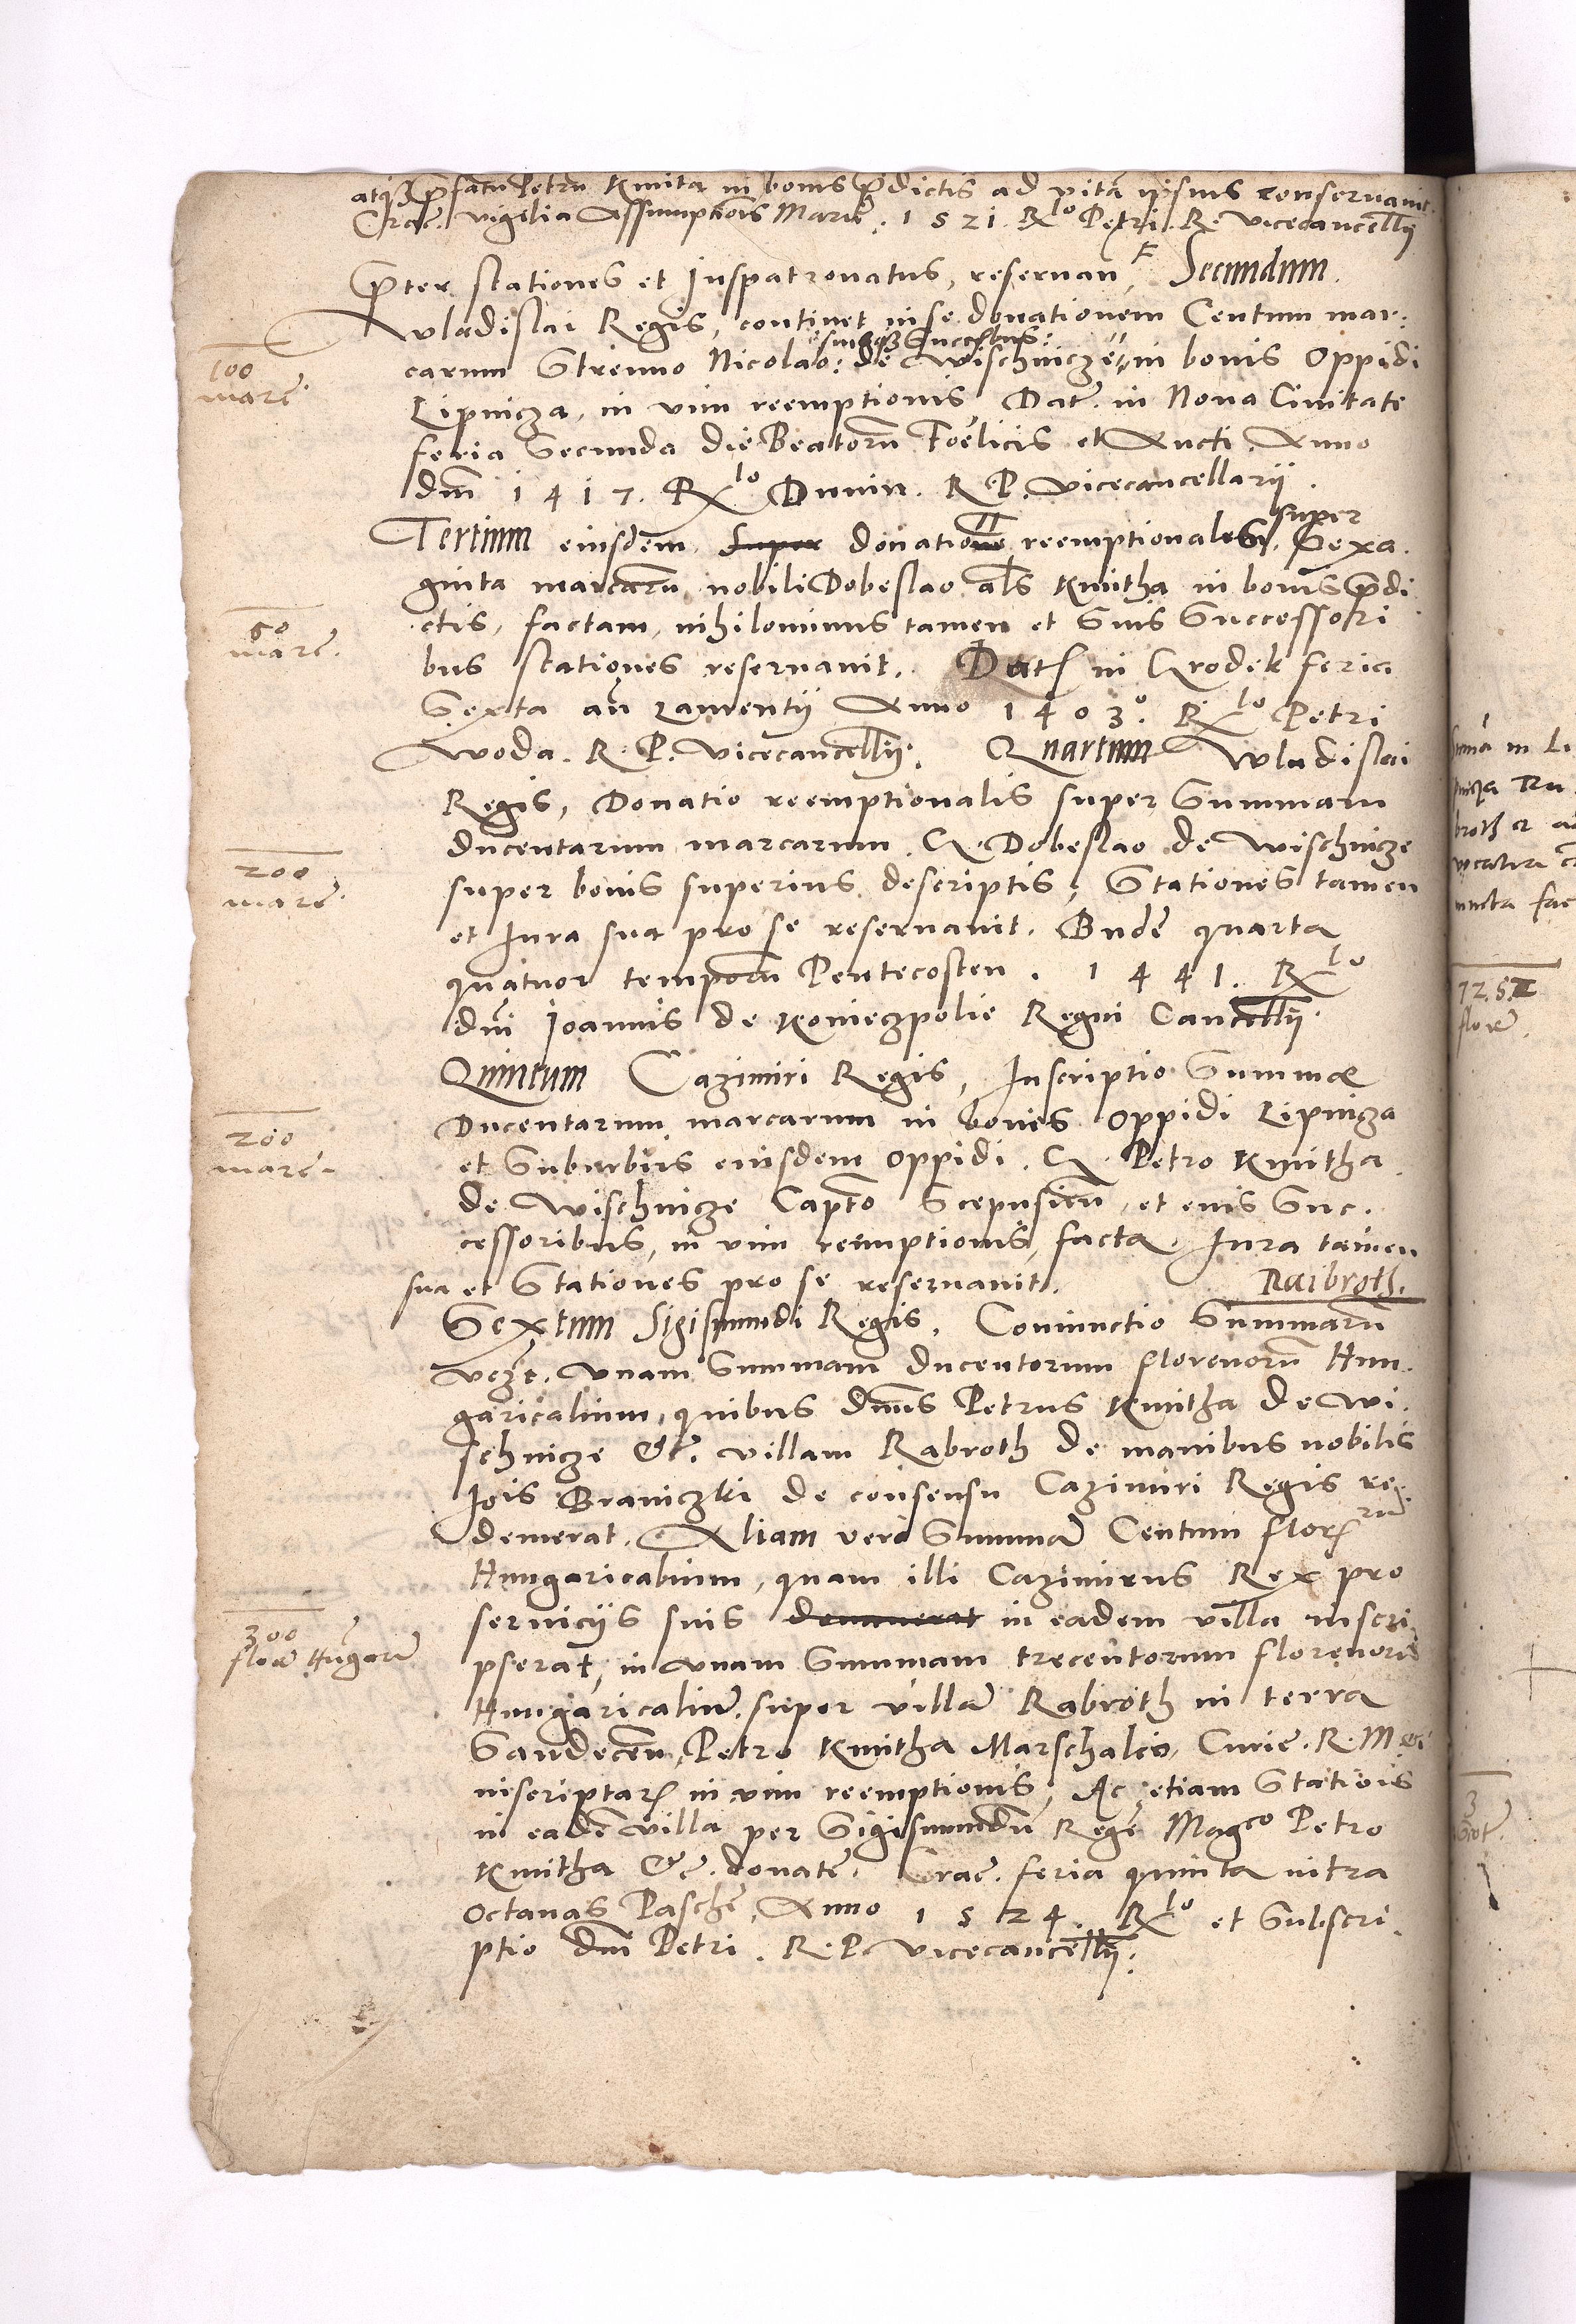 atq3 p̄fatū Petrū Kmita in bonis p̄dictis ad vitā ipsius conservavit.
Crac̄. vigilia Assumptiōis Mariæ. 1521. Rlo Petri. R. vicecancellii
P̄ter stationes et Juspatronatus, reservan̄ Secundum.
Wladislai Regis, continet in se donationem Centum mar:
100 marc̄.
suisq3 Successibus:
carum Strenuo Nicolao: de Wischnicze in bonis Oppidi
Lipnicza, in vim reemptionis, Dat̄. in Nova Civitate
feria Secunda die Beatorū Foelicis et Aucti. Anno
dn̄i 1417. Rlo Dunin. R P. vicecancellarii.
super
Tertium eiusdem super donatione reemptionales, Sexa.
ginta marcarū nobili Dobeslao al̄s Kmitha in bonis p̄di
60 marc̄.
ctis, factam, nihilominus tamen et Suis Successori
bus stationes reservavit. Dat̄ in Grodek feria
Sexta an̄ Laurentii Anno 1403o. Rlo Petri
Woda. R. P. Vicecancellii. Quartum Wladislai
Regis, Donatio reemptionalis super Summam
200 marc̄.
ducentarum marcarum. G. Dobeslao de Wischnicze
super bonis superius descriptis, Stationes tamen
et Jura sua pro se reservavit. Budē quarta
quatuor temporū Pentecosten. 1441. Rlo
dn̄i Joannis de Konieczpolie Regni Cancellii.
Quintum Cazimiri Regis, Inscriptio Summæ
200 marc̄.
Ducentarum marcarum in bonis Oppidi Lipnicza
et Suburbiis eiusdem Oppidi. G. Petro Kmitha
de Wischnicze Capto Scepusien̄, et eius Suc.
cessoribus, in vim reemptionis, facta. Jura tamen
sua et Stationes pro se reservavit. Raibroth.
Sextum Sigismundi Regis, Coniunctio Summarū
vcz. unam Summam ducentorum florenorū Hun.
garicalium, quibus dn̄us Petrus Kmitha de Wi.
schnicze etc̄. villam Rabroth de manibus nobilis
Jois Braniczki de consensu Cazimiri Regis re
demerat. Aliam vero Summā Centum florrum
Hungaricalium, quam illi Cazimirus Rex pro
serviciis suis in eadem villa inscri
300 flor̄ Hungar̄
pserat, in unam Summam trecentorum florenorū
Hungaricaliū super villā Rabroth in terra
Sandecen̄, Petro Kmitha Marschalco, Curie. R. M
inscriptar̄ in vim reemptionis, Ac etiam Statiōis
in eadē villa per Sigismundū Regē Magco Petro
Kmitha etc̄. donatē. Crac̄. feria quinta intra
Octavas Paschē, Anno 1524. Rlo et Subscri.
ptio dn̄i Petri. R. P. vicecancellii.
Li
72.52
flor̄.
3